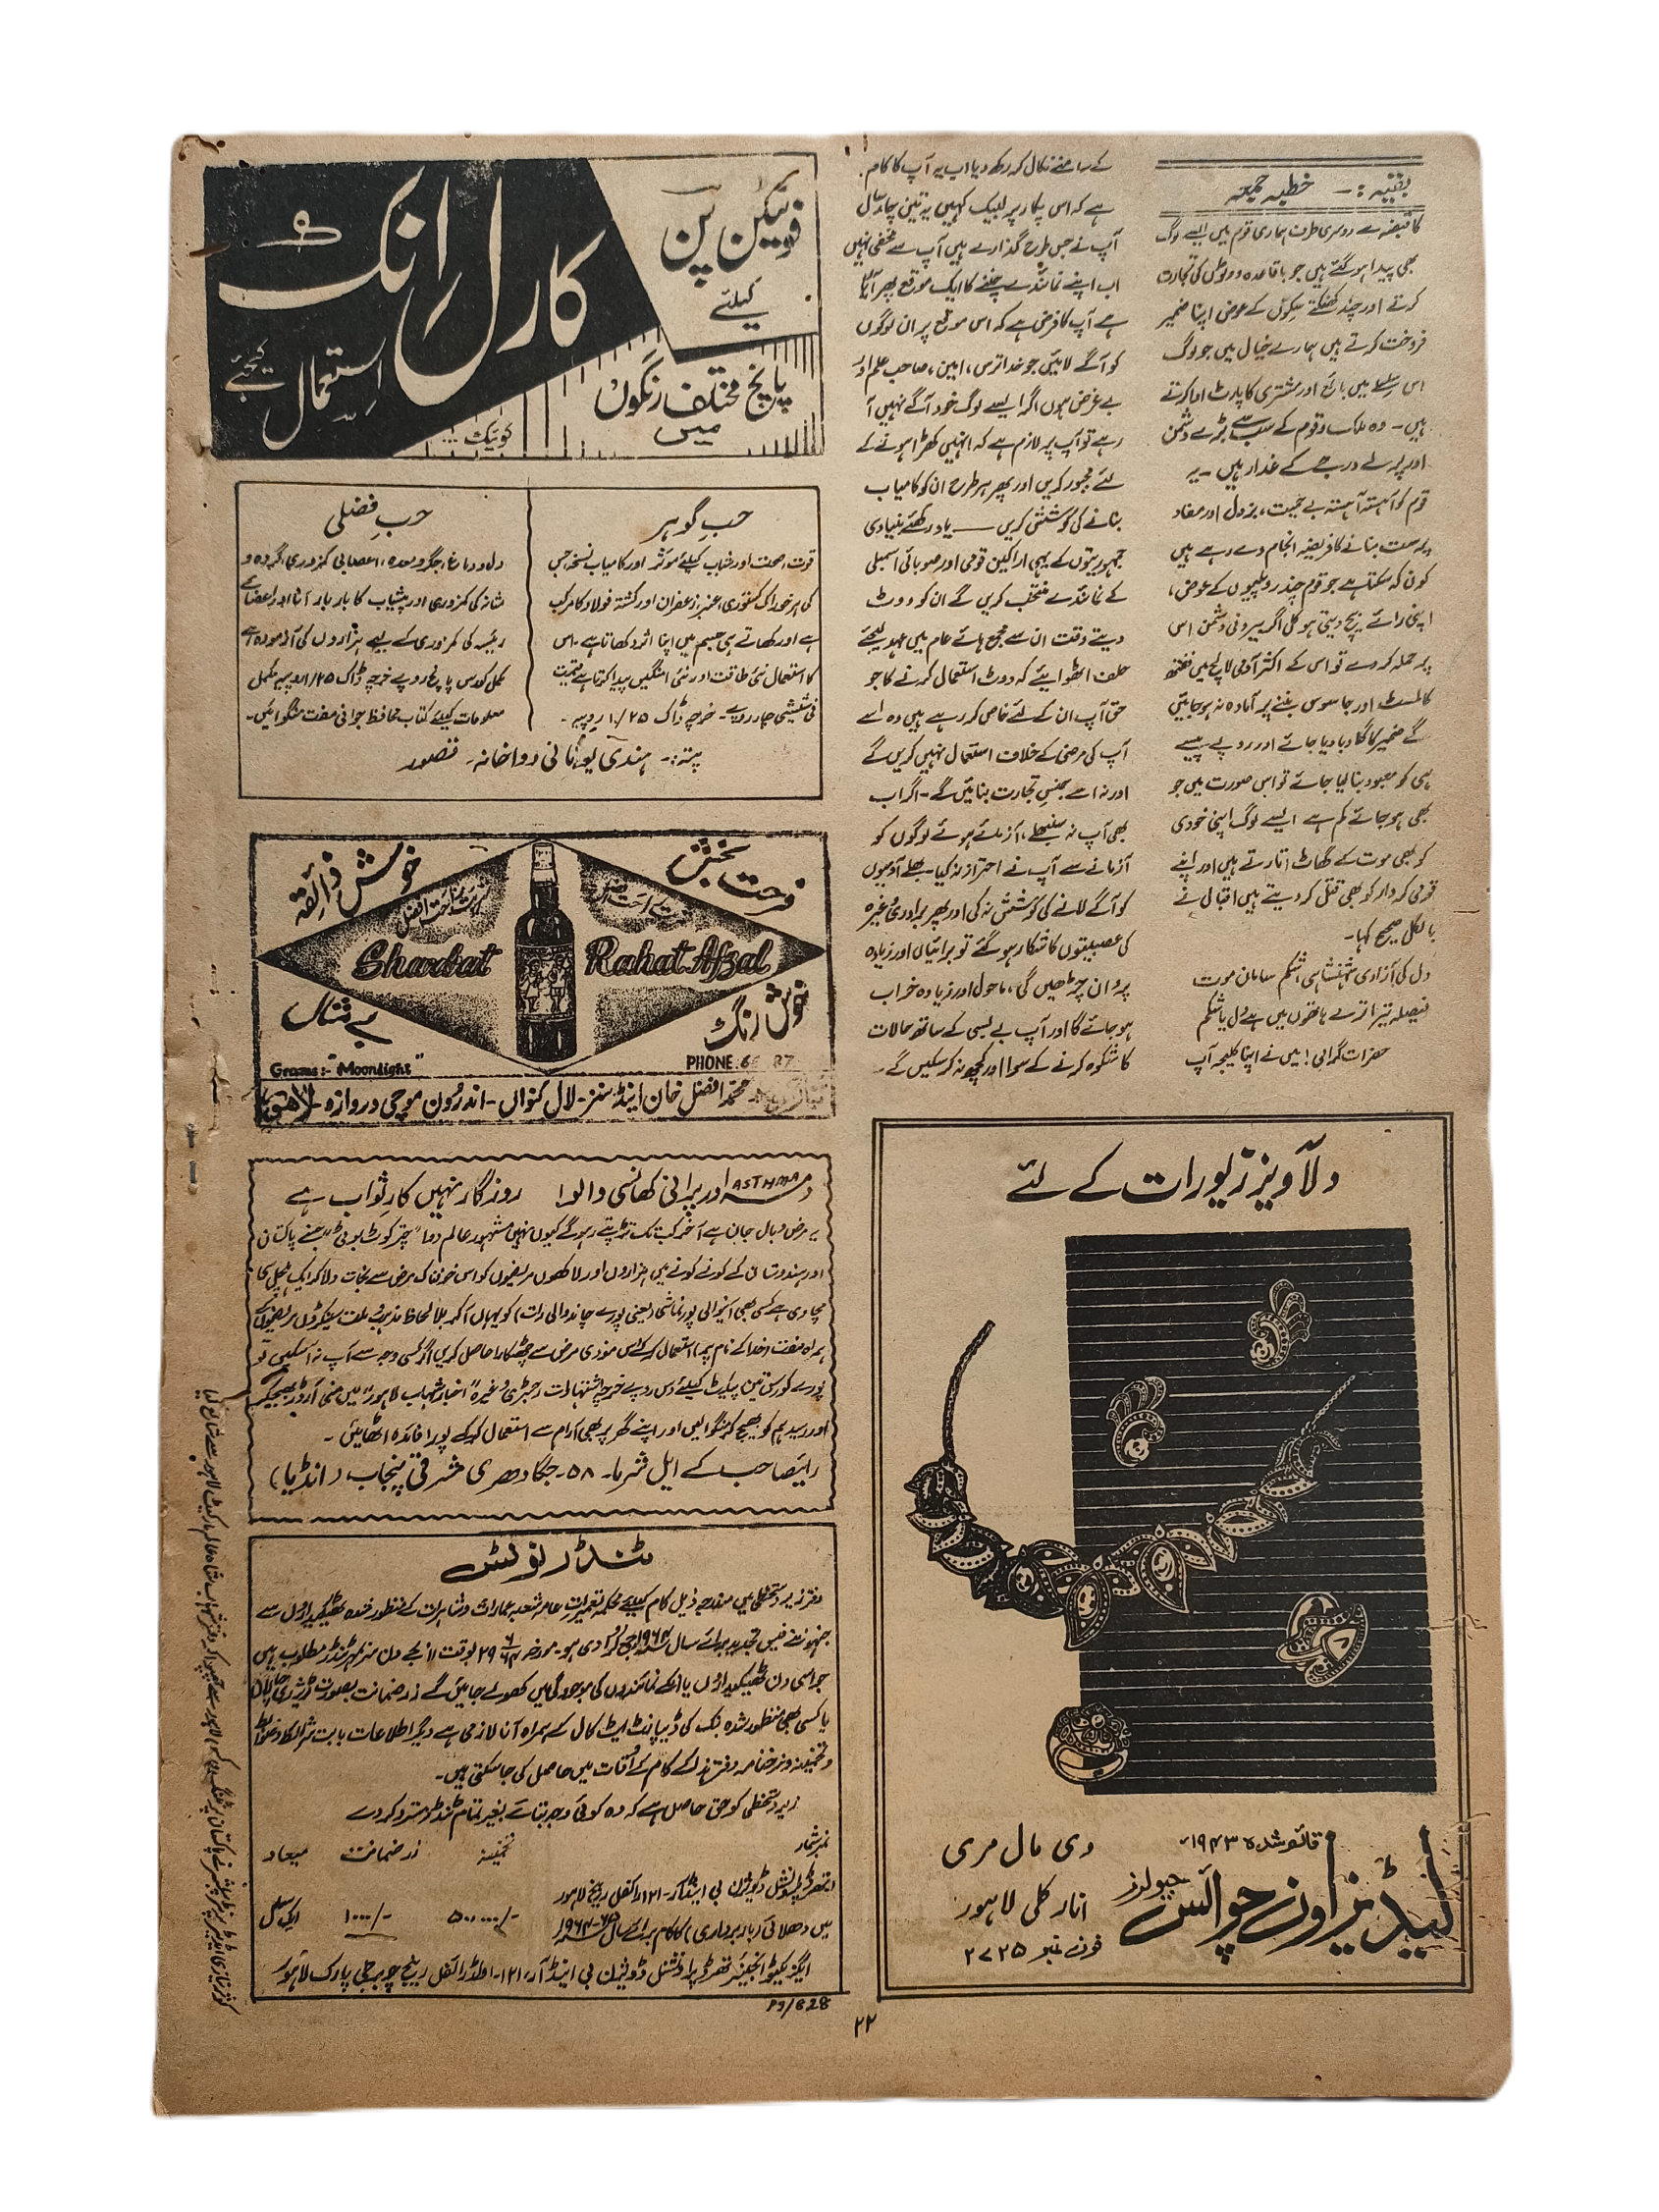 بقیہ :- خطبہ جمعہ
کا قبضہ ہے دوسری طرف ہماری قوم میں ایسے لوگ
بھی پیدا ہو گئے ہیں جو باقاعدہ ووٹوں کی تجارت
کرتے اور چند کھنکتے سکوں کے عوض اپنا ضمیر
فروخت کرتے ہیں ہمارے خیال میں جو لوگ
اس سلسلے میں بائع اور مشتری کا پارٹ ادا کرتے
ہیں ۔ وہ ملک و قوم کے سب سے بڑے دشمن
اور پرلے درجے کے غدار ہیں ۔ یہ
قوم کو آہستہ آہستہ بے حمیت، بزدل اور مفاد
پرست بنانے کا فریضہ انجام دے رہے ہیں
کون کہ سکتا ہے جو قوم چند روپیوں کے عوض،
اپنی رائے بیچ دیتی ہو کل اگر بیرونی دشمن اس
پر حملہ کر دے تو اس کے اکثر آدمی لالچ میں ففتھ
کالمسٹ اور جاسوس بننے پر آمادہ نہ ہو جائیں
گے ضمیر کا گلا دبا دیا جائے اور روپے پیسے
ہی کو معبود بنا لیا جائے تو اس صورت میں جو
بھی ہو جائے کم ہے ایسے لوگ اپنی خودی
کو بھی موت کے گھاٹ اتارتے ہیں اور اپنے
قومی کردار کو بھی قتل کر دیتے ہیں اقبال نے
بالکل صحیح کہا۔
دل کی آزادی شہنشاہی شکم سامان موت
فیصلہ تیرا ترے ہاتھوں میں ہے دل یا شکم
حضرات گرامی! میں نے اپنا کلیجہ آپ
کے سامنے نکال کر رکھ دیا اب یہ آپ کا کام
ہے کہ اس پکار پر لبیک کہیں یہ تین چار سال
آپ نے جس طرح گذارے ہیں آپ سے مخفی نہیں
اب اپنے نمائندے چننے کا ایک موقع پھر آیا
ہے آپ کا فرض ہے کہ اس موقع پر ان لوگوں
کو آگے لائیں جو خدا ترس، امین، صاحب علم اور
بے غرض ہوں اگر ایسے لوگ خود آگے نہیں آ
رہے تو آپ پر لازم ہے کہ انہیں کھڑا ہونے کے
لئے مجبور کریں اور پھر ہر طرح ان کو کامیاب
بنانے کی کوشش کریں — یاد رکھئے بنیادی
جمہوریتوں کے یہی اراکین قومی اور صوبائی اسمبلی
کے نمائندے منتخب کریں گے ان کو ووٹ
دیتے وقت ان سے مجمع ہائے عام میں عہد لیجئے
حلف اٹھوایئے کہ ووٹ استعمال کرنے کا جو
حق آپ ان کے لئے خاص کر رہے ہیں وہ اسے
آپ کی مرضی کے خلاف استعمال نہیں کریں گے
اور نہ اسے جنس تجارت بنائیں گے ۔ اگر اب
بھی آپ نہ سنبھلے، آزمائے ہوئے لوگوں کو
آزمانے سے آپ نے احتراز نہ کیا۔ بھلے آدمیوں
کو آگے لانے کی کوشش نہ کی اور پھر برادری وغیرہ
کی عصبیتوں کا شکار ہو گئے تو برائیاں اور زیادہ
پروان چڑھیں گی، ماحول اور زیادہ خراب
ہو جائے گا اور آپ بے بسی کے ساتھ حالات
کا شکوہ کرنے کے سوا اور کچھ نہ کر سکیں گے۔
فونٹین پن
کیلئے
کارل انک
استعمال کیجئے
پانچ مختلف رنگوں
میں
کوئیک
حب گوہر
قوت، صحت اور شباب کیلئے موثر اور کامیاب نسخہ جس
کی ہر خوراک کستوری، عنبر، زعفران اور کشتہ فولاد کا مرکب
ہے اور کھاتے ہی جسم میں اپنا اثر دکھاتا ہے۔ اس
کا استعمال نئی طاقت اور نئی امنگیں پیدا کرتا ہے قیمت
فی شیشی چار روپے۔ خرچہ ڈاک ۱/۲۵ روپیہ۔
حب فضلی
دل و دماغ، جگر و معدہ، اعصابی کمزوری، گردہ و
مثانہ کی کمزوری اور پیشاب کا بار بار آنا اور اعضائے
رئیسہ کی کمزوری کے لیے ہزاروں کی آزمودہ ہے
مکمل کورس پانچ روپے خرچہ ڈاک ۱/۲۵ روپیہ مکمل
معلومات کیلئے کتاب محافظ جوانی مفت منگوائیں۔
پتہ :- ہندی یونانی دواخانہ۔ قصور
فرحت بخش
خوش ذائقہ
شربت راحت افضل
Sharbat Rahat Afzal
خوش رنگ
بے مثال
Grams:- "Moonlight"
PHONE. 6
محمد افضل خان اینڈ سنز۔ لال کنواں۔ اندرون موچی دروازہ۔ لاہور
دمہ ASTHMA اور پرانی کھانسی والو! روزگار نہیں کار ثواب ہے
یہ مرض وبال جان ہے آخر کب تک تڑپتے رہو گے کیوں نہیں مشہور عالم دوا "چتر کوٹ بوٹی" جسنے پاکستان
اور ہندوستان کے کونے کونے میں ہزاروں اور لاکھوں مریضوں کو اس خوفناک مرض سے نجات دلا کر ایک ہلچل سی
مچا دی ہے کسی بھی آنیوالی پورنماشی (یعنی پورے چاند والی رات) کو یہاں آ کر بلا لحاظ مذہب و ملت سینکڑوں مریضوں کے
ہمراہ مفت (خدا کے نام پر) استعمال کر کے اس موذی مرض سے چھٹکارا حاصل کریں اگر کسی وجہ سے آپ نہ آ سکیں تو
پورے کورس تین پیکٹ کیلئے دس روپے خرچہ اشتہارات رجسٹری وغیرہ "اخبار شہاب لاہور" میں منی آرڈر بھیجکر
اور رسید ہم کو بھیج کر منگوائیں اور اپنے گھر پر بھی آرام سے استعمال کر کے پورا فائدہ اٹھائیں ۔
رائے صاحب کے ایل شرما۔ ۵۸۔ جگادھری مشرقی پنجاب (انڈیا)
ٹنڈر نوٹس
دفتر زیر دستخطی میں مندرجہ ذیل کام کیلئے محکمہ تعمیرات عامہ شعبہ عمارات و شاہرات کے منظور شدہ ٹھیکیداروں سے
جنہوں نے فیس تجدید برائے سال
جو اسی دن ٹھیکیداروں یا انکے نمائندوں کی موجودگی میں کھولے جائیں گے زر ضمانت بصورت
یا کسی بھی منظور شدہ بنک کی ڈیپازٹ ایٹ کال کے ہمراہ آنا لازمی ہے دیگر اطلاعات بابت شرائط و ضوابط
و تخمینہ و نرخنامہ دفتر ہذا کے کام کے اوقات میں حاصل کی جا سکتی ہیں۔
زیر دستخطی کو حق حاصل ہے کہ وہ کوئی وجہ بتائے بغیر تمام ٹنڈر مسترد کر دے
نمبر شمار تخمینہ زر ضمانت میعاد
تھرڈ پراونشل ڈویژن بی اینڈ آر۔ ۱۲۱ رائفل رینج لاہور
میں دھلائی (باربرداری) کا کام برائے سال ۶۵-۱۹۶۴ ۵۰،۰۰۰/- ۱۰۰۰/- ایک سال
ایگزیکٹو انجینئر تھرڈ پراونشل ڈویژن بی اینڈ آر، ۱۲۱۔ اولڈ رائفل رینج چوبرجی پارک لاہور
دلآویز زیورات کے لئے
قائم شدہ ۱۹۴۳ء
لیڈیز اون چوائس جیولرز
دی مال مری
انار کلی لاہور
فون نمبر ۲۷۲۵
۲۲